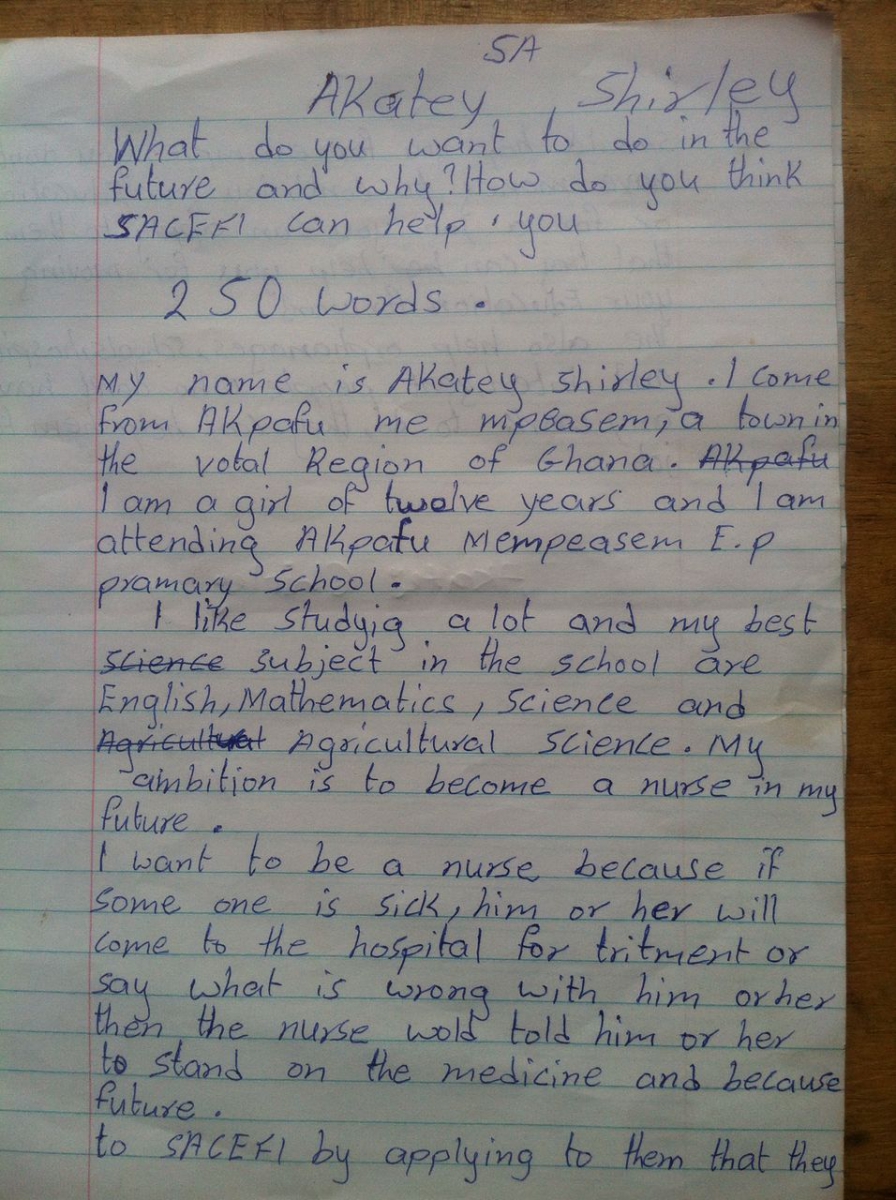 SA
AKatey Shirley
What do you want to do in the
future and why? How do you think
SACEFI can help you
250 words.
My name is AKatey Shirley. I come
from AKpafu me mpeasem, a town in
the votal Region of Ghana. AKpafu
I am a girl of twelve years and I am
attending AKpafu Mempeasem E.p
pramary School.
I like studyig a lot and my best
science subject in the school are
English, Mathematics, Science and
Agricultural Agricultural Science. My
ambition is to become a nurse in my
future.
I want to be a nurse because if
some one is sick, him or her will
come to the hospital for tritment or
say what is wrong with him or her
then the nurse wold told him or her
to stand on the medicine and because
future.
to SACEFI by applying to them that they